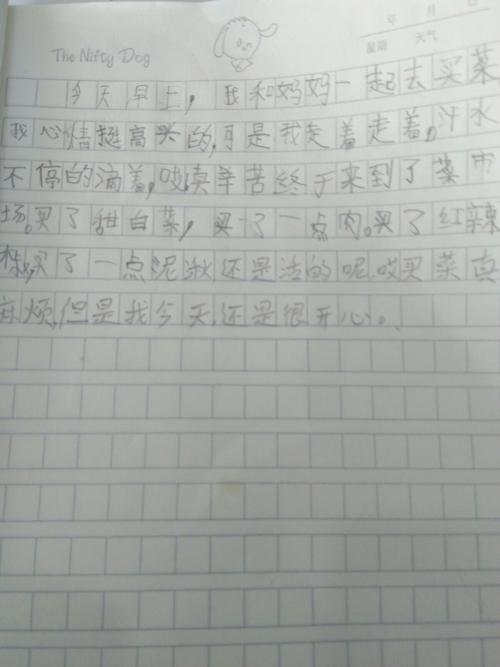 年 月 日
The Nifty Dog
星期 天气
今天早上,我和妈妈一起去买菜
我心情挺高兴的,可是我走着走着,汗水
不停的滴着,哎,真辛苦终于来到了菜市
场。买了甜白菜,买了一点肉。买了红辣
椒,买了一点泥鳅,还是活的呢,哎买菜真
麻烦,但是我今天,还是很开心。